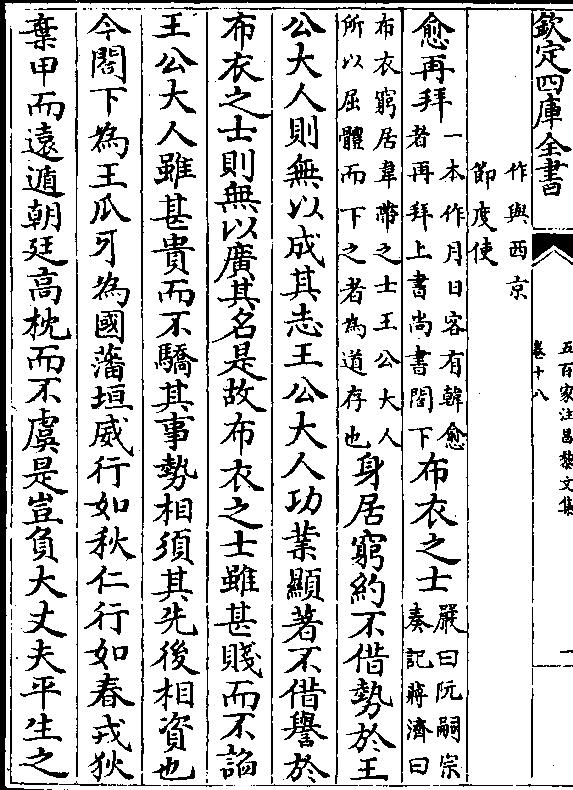 欽定四庫全書
五百家注昌黎文集
卷十八
一
作與西京
節度使
愈再拜一本作月日客有韓愈者再拜上書尚書閤下布衣之士嚴曰阮嗣宗奏記蔣濟曰
布衣窮居韋帶之士王公大人所以屈體而下之者為道存也身居窮約不借勢於王
公大人則無以成其志王公大人功業顯著不借譽於
布衣之士則無以廣其名是故布衣之士雖甚賤而不諂
王公大人雖甚貴而不驕其事勢相須其先後相資也
今閤下為王爪牙為國藩垣威行如秋仁行如春戎狄
棄甲而遠遁朝廷高枕而不虞是豈負大丈夫平生之